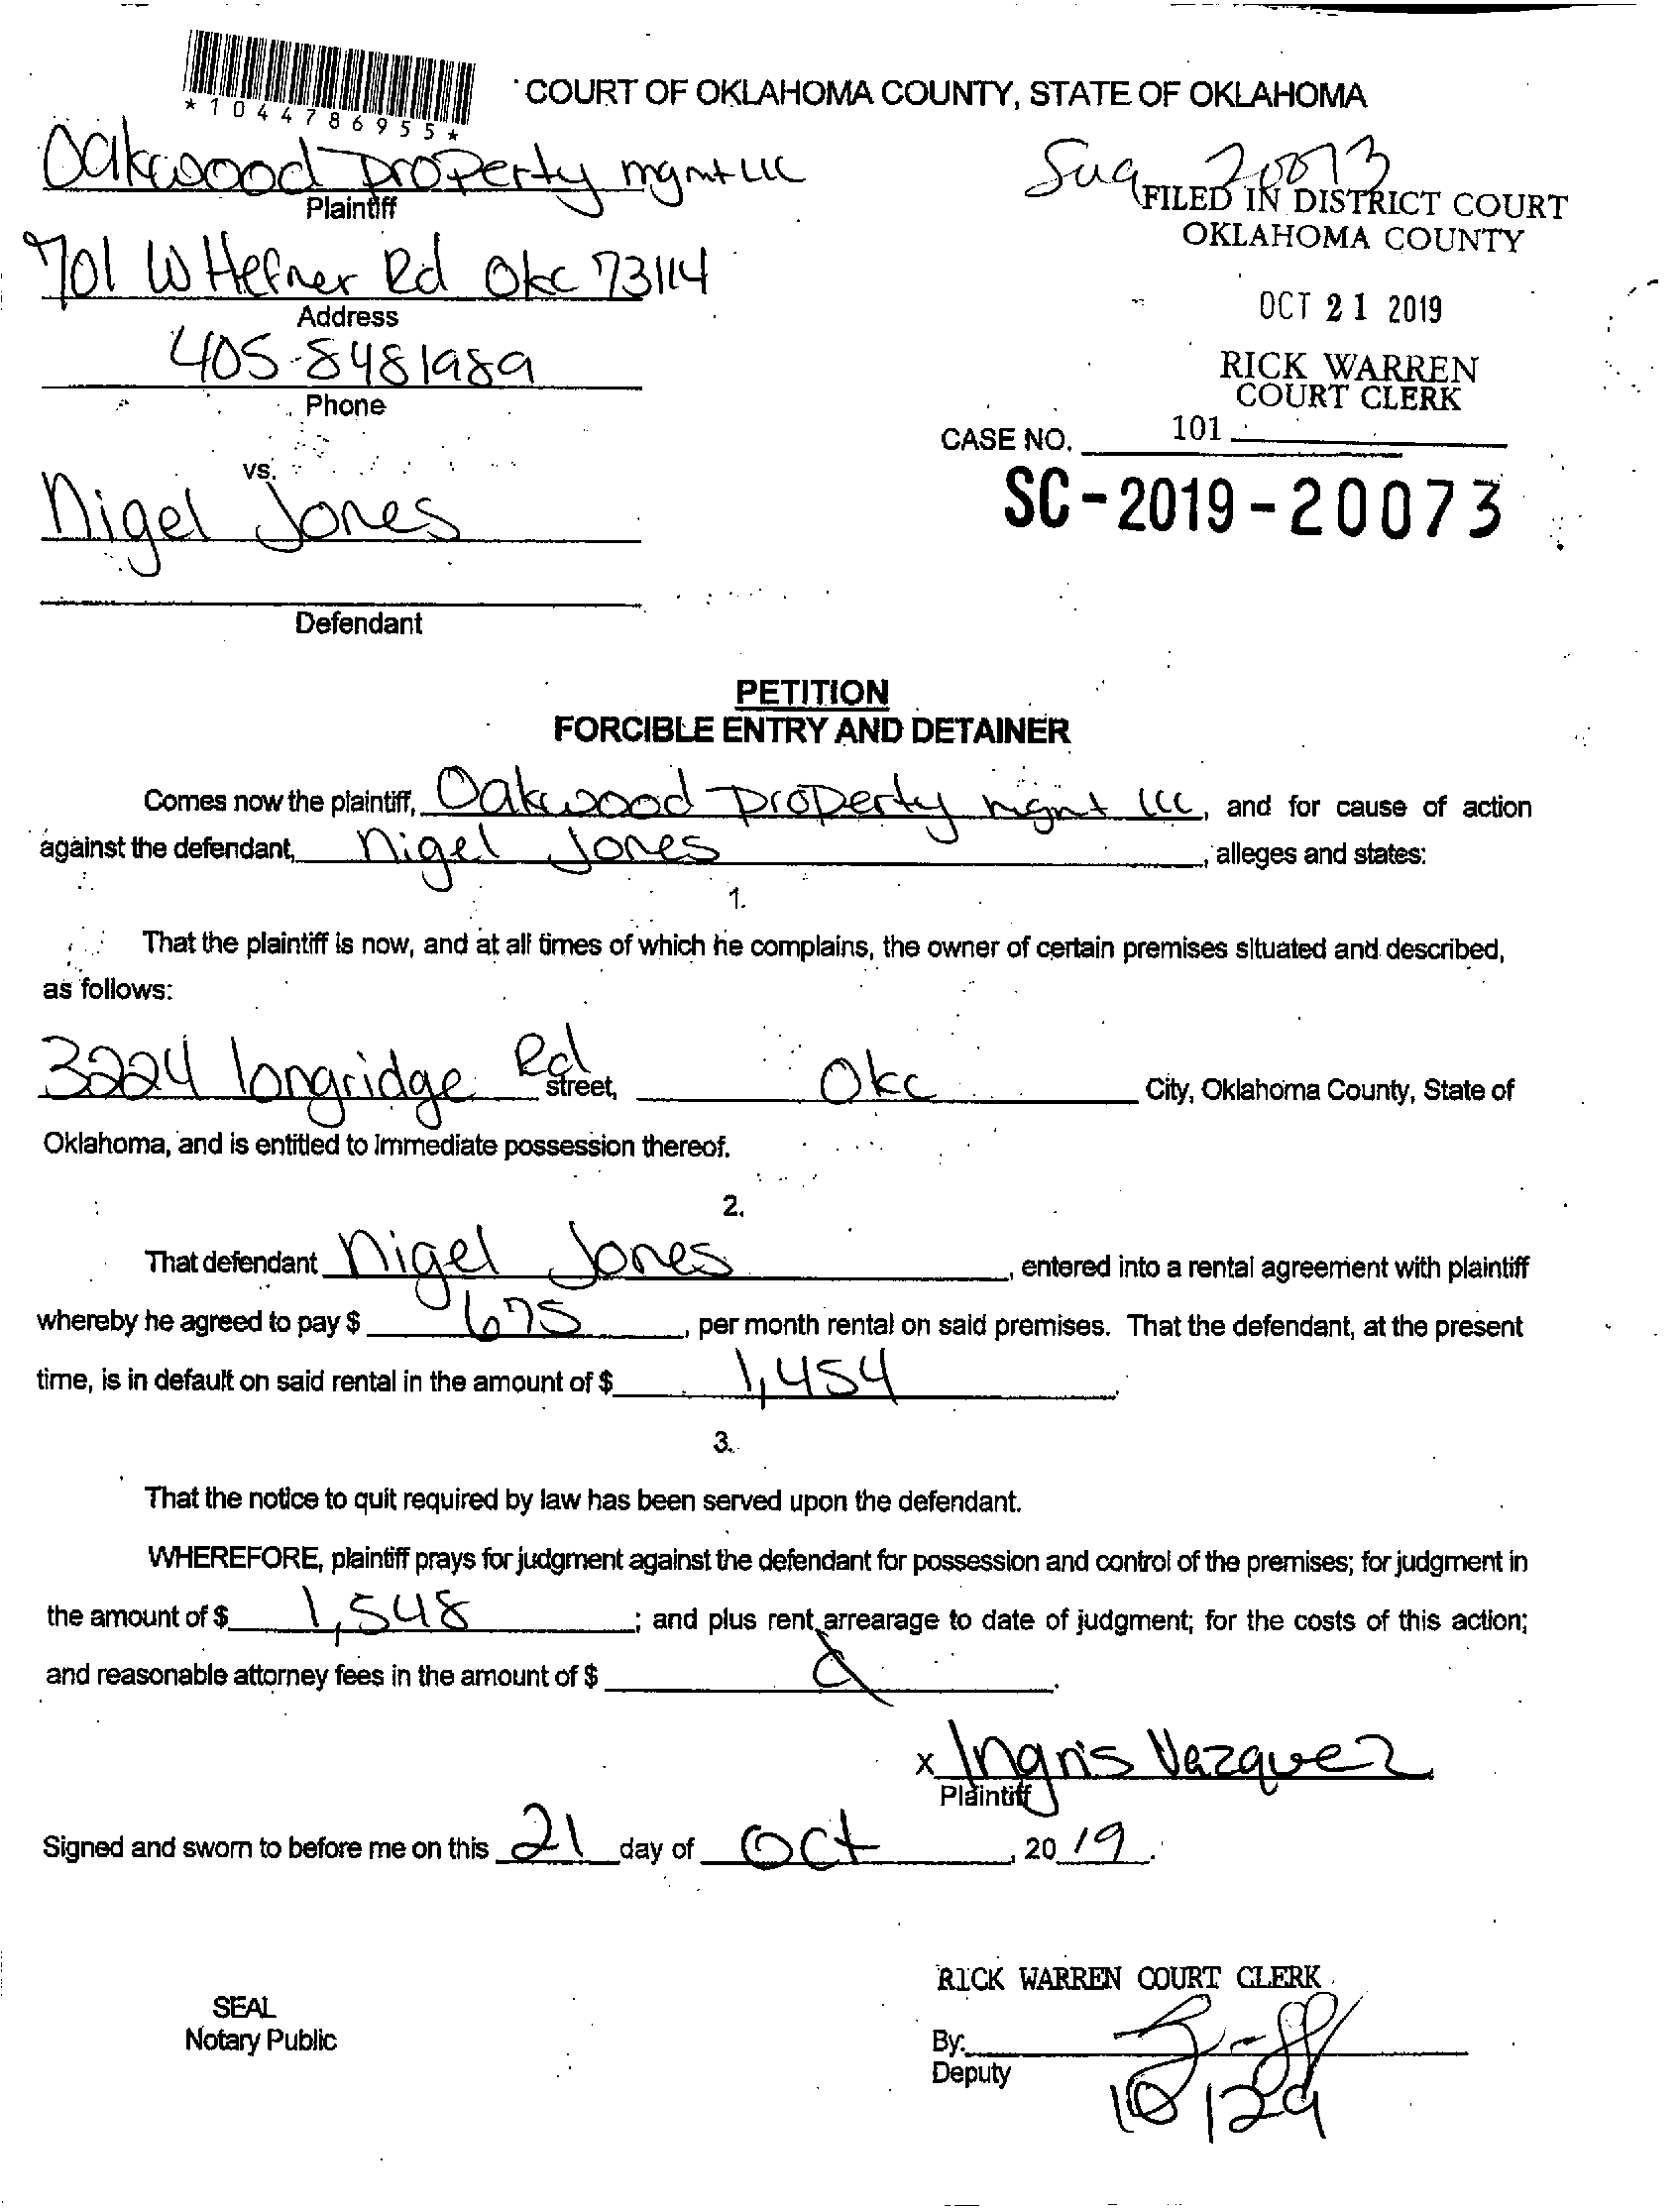 *1044786955*
COURT OF OKLAHOMA COUNTY, STATE OF OKLAHOMA
Oakwood Property mgmt LLC
Plaintiff
20073
FILED IN DISTRICT COURT
OKLAHOMA COUNTY
701 W Hefner Rd Okc 73114
Address
OCT 21 2019
405-8481989
Phone
RICK WARREN
COURT CLERK
CASE NO. 101
vs.
SC-2019-20073
Nigel Jones
Defendant
PETITION
FORCIBLE ENTRY AND DETAINER
Comes now the plaintiff, Oakwood Property mgmt LLC, and for cause of action
against the defendant, Nigel Jones, alleges and states:
1.
That the plaintiff is now, and at all times of which he complains, the owner of certain premises situated and described,
as follows:
3224 longridge Rd street, Okc City, Oklahoma County, State of
Oklahoma, and is entitled to immediate possession thereof.
2.
That defendant Nigel Jones, entered into a rental agreement with plaintiff
whereby he agreed to pay $ 675, per month rental on said premises. That the defendant, at the present
time, is in default on said rental in the amount of $ 1,454.
3.
That the notice to quit required by law has been served upon the defendant.
WHEREFORE, plaintiff prays for judgment against the defendant for possession and control of the premises; for judgment in
the amount of $ 1,548; and plus rent arrearage to date of judgment; for the costs of this action;
and reasonable attorney fees in the amount of $
x Ingris Vazquez
Plaintiff
Signed and sworn to before me on this 21 day of Oct, 2019.
RICK WARREN COURT CLERK
SEAL
Notary Public
By:
Deputy